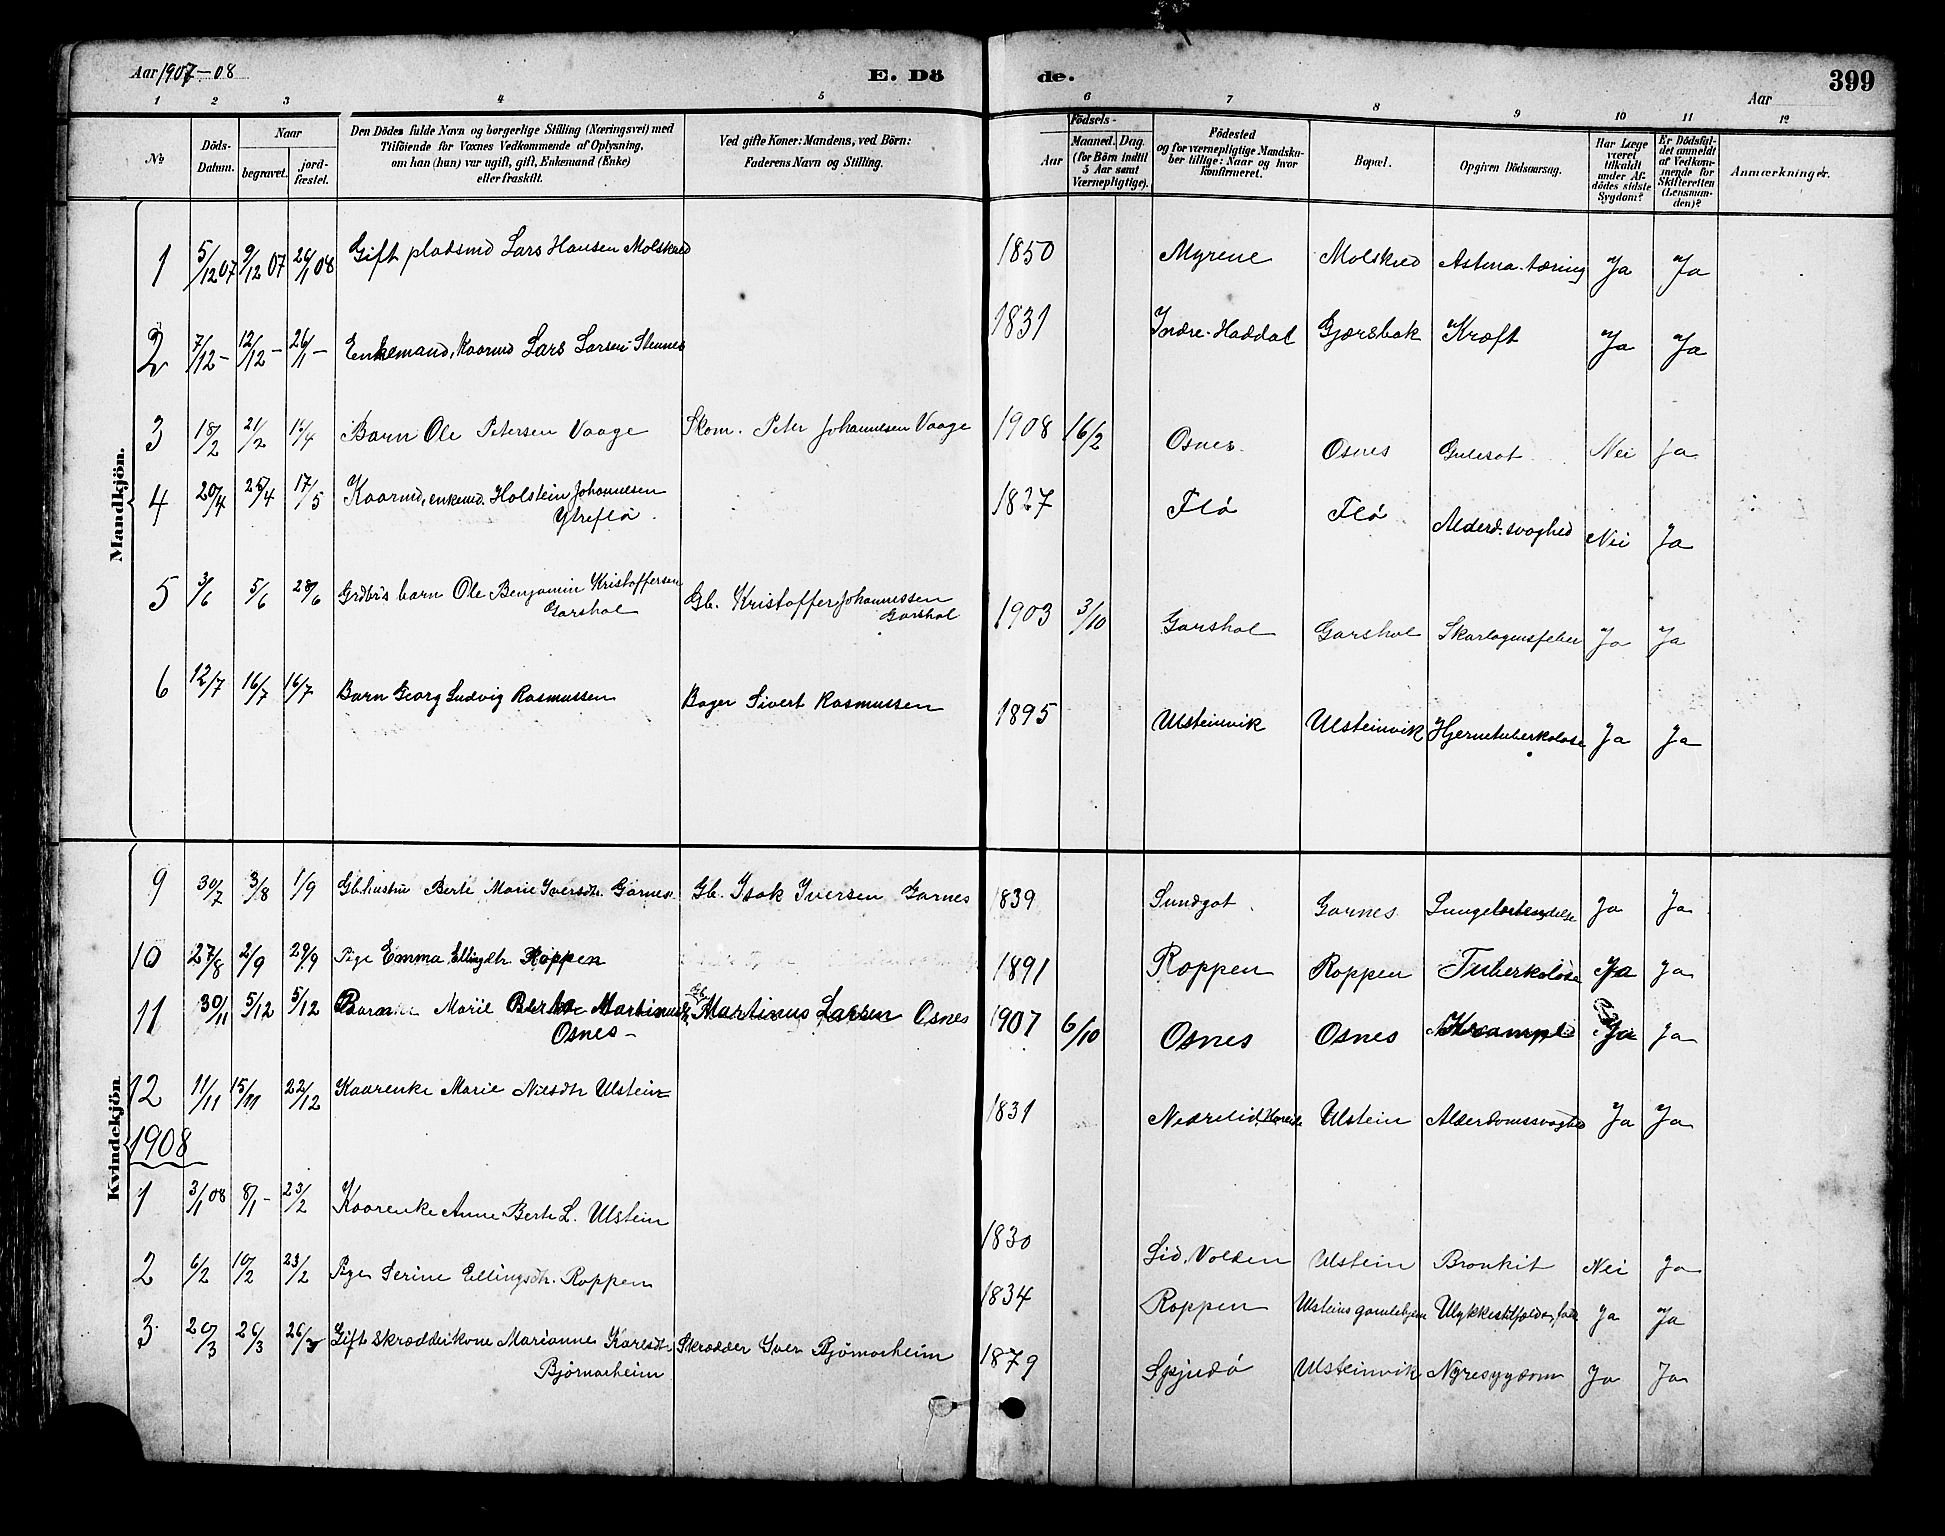 Aar 1907-08
E. Dö de.
Aar
399
1 2 3 4 5 6 7 8 9 10 11 12
No
Döds-Datum.
Naar
begravet.
jord-fæstet.
Den Dödes fulde Navn og borgerlige Stilling (Næringsvei) med
Tilföiende for Voxnes Vedkommende af Oplysning,
om han (hun) var ugift, gift, Enkemand (Enke)
eller fraskilt.
Ved gifte Koner: Mandens, ved Börn:
Faderens Navn og Stilling.
Födsels-
Aar
Maaned. Dag.
(for Börn indtil
5 Aar samt
Værnepligtige).
Födested
og for værnepligtige Mandska-
ber tillige: Naar og hvor
konfirmeret.
Bopæl.
Opgiven Dödsaarsag.
Har Læge
været
tilkaldt
under Af-
dödes sidste
Sygdom?
Er Dödsfal-
det anmeldt
af Vedkom-
mende for
Skifteretten
(Lensman-
den)?
Anmærkninger.
Mandkjön.
1 5/12 07 9/12 07 26/1 08 Gift pladsmd Lars Hansen Molskred 1850 Myrene Molskred Astma-tæring Ja Ja
2 7/12 - 12/12 - 26/1 - Enkemand, Kaarmd Lars Larsen Stennes 1831 Indre-Haddal Gjærsbak Kræft Ja Ja
3 18/2 21/2 Barn Ole Petersen Vaage Skom. Peter Johannesen Vaage 1908 16/2 Osnes Osnes Gulesot Nei Ja
4 20/4 25/4 17/5 Kaarmd, enkemd. Holstein Johannesen
Ytreflø 1827 Flø Flø Alderd. svaghed Nei Ja
5 3/6 5/6 28/6 Grdbrs barn Ole Benjamin Kristoffersen
Garshol Gb. Kristoffer Johannessen
Garshol 1903 3/10 Garshol Garshol Skarlagensfeber Ja Ja
6 12/7 16/7 16/7 Barn Georg Ludvig Rasmussen Bager Sivert Rasmussen 1895 Ulsteinvik Ulsteinvik Hjernetuberkolose Ja Ja
Kvindekjön
9 30/7 3/8 1/9 Gb.hustru Berte Marie Iversdtr. Garnes Gb. Isak Iversen Garnes 1839 Sundgot Garnes Lungebetændelse Ja Ja
10 27/8 2/9 29/9 Pige Emma Ellingdtr Roppen 1891 Roppen Roppen Tuberkolose Ja Ja
11 30/11 5/12 5/12 Barn Marie Berta Martinusdtr.
Osnes - Gb. Martinus Larsen Osnes 1907 6/10 Osnes Osnes Krampe Ja Ja
12 11/11 15/11 22/12 Kaarenke Marie Nilsdtr Ulstein 1831 Nedrelid, Ulstein Alderdomssvaghed Ja Ja
1908
1 3/1 08 8/1 - 23/2 Kaarenke Anne Berte L. Ulstein 1830 Lid, Volden Ulstein Bronkit Nei Ja
2 6/2 10/2 23/2 Pige Serine Ellingsdtr. Roppen 1834 Roppen Ulsteins gamlehjem Ulykkestilfælde, Ja Ja
3 20/3 26/3 26/3 Gift Skrædderkone Marianne Karlsdtr
Bjørnarheim Skrædder Iver Bjørnarheim 1879 Ulsteinvik Nyresygdom Ja Ja